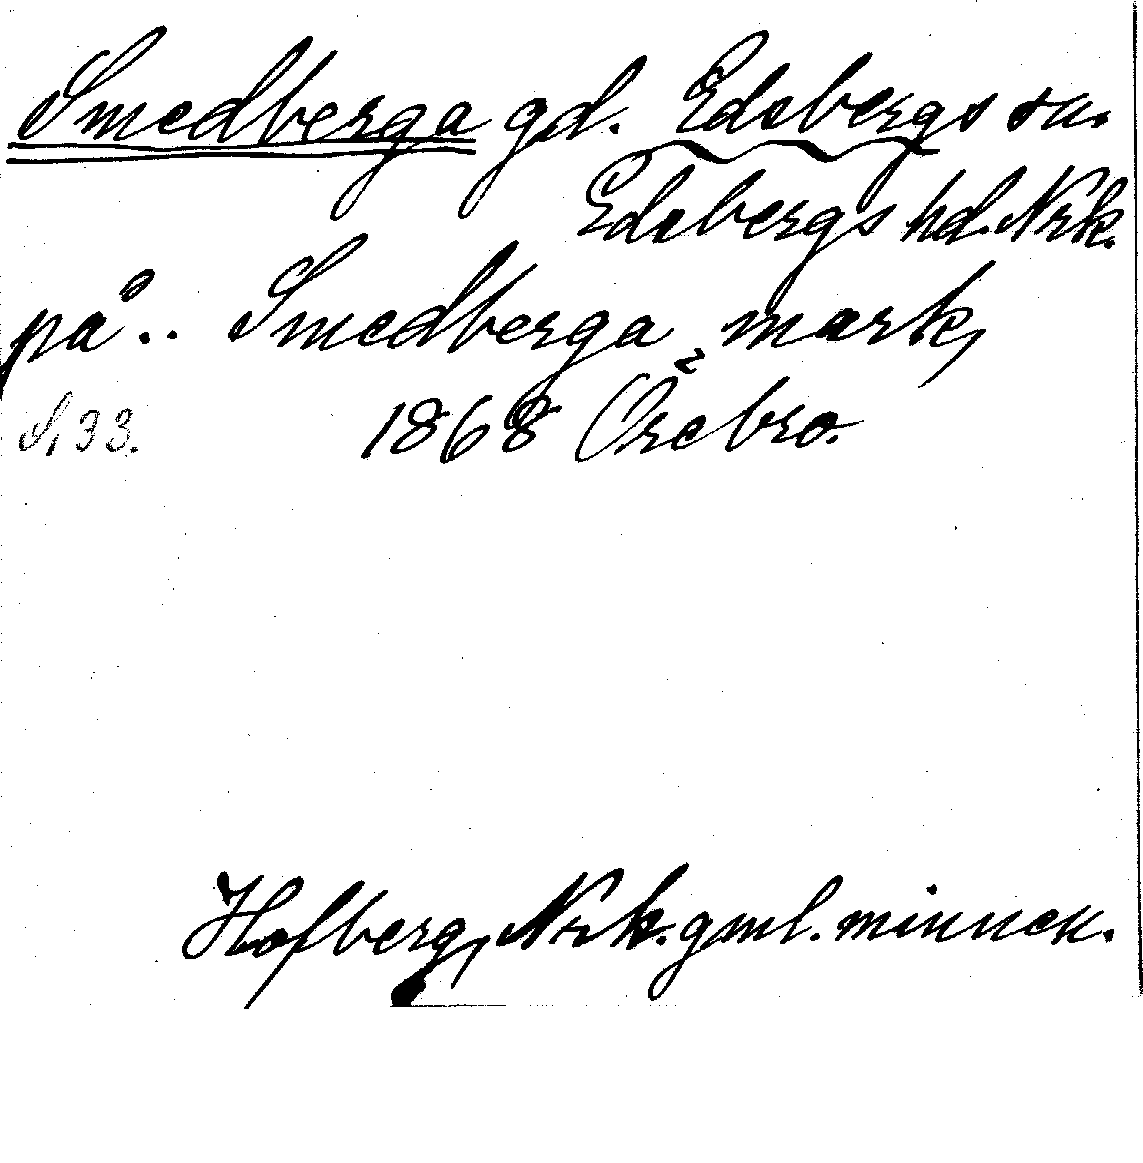 Smedberga gd. Edsbergs sn.
Edsbergs hd. Nrk.
på.. Smedberga mark,
S, 33. 1868 Örebro.
Hofberg, Nrk. gml. minnen.